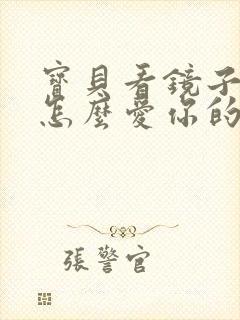 寶貝看鏡子
怎麼愛你的
張警官